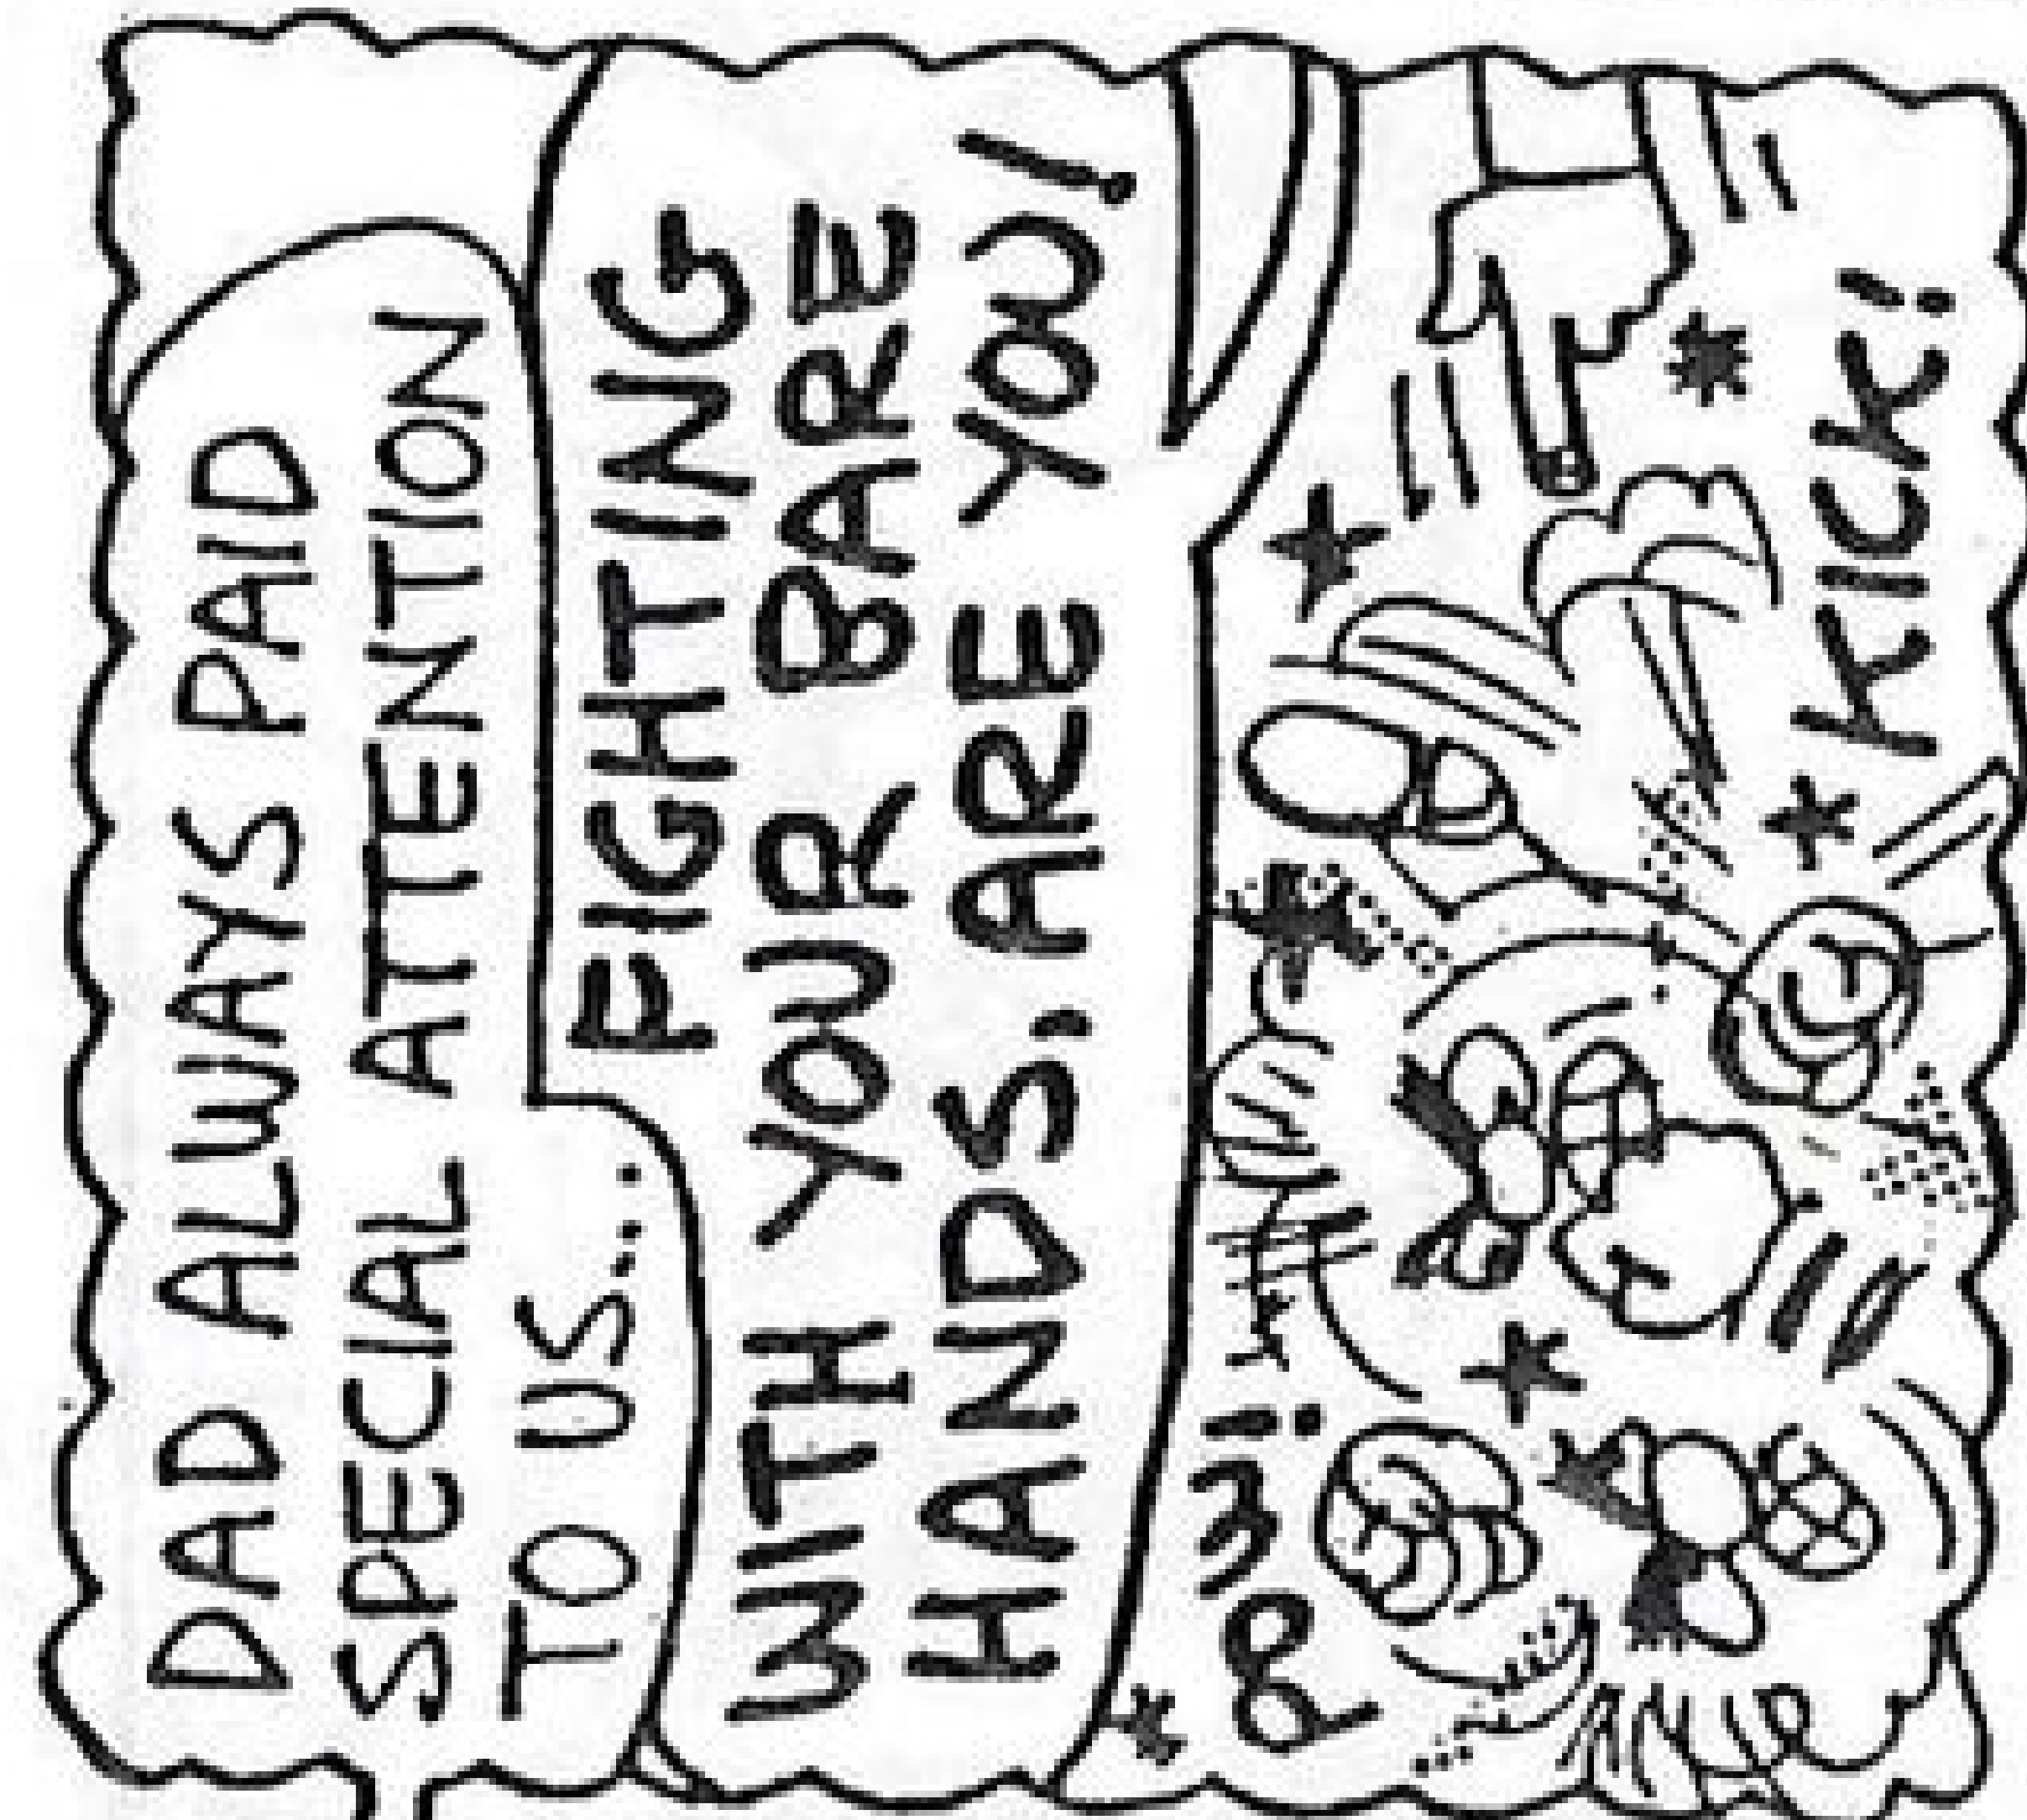 DAD ALWAYS PAID
SPECIAL ATTENTION
TO US...
FIGHTING
WITH YOUR BARE
HANDS, ARE YOU!
POW!
KICK!